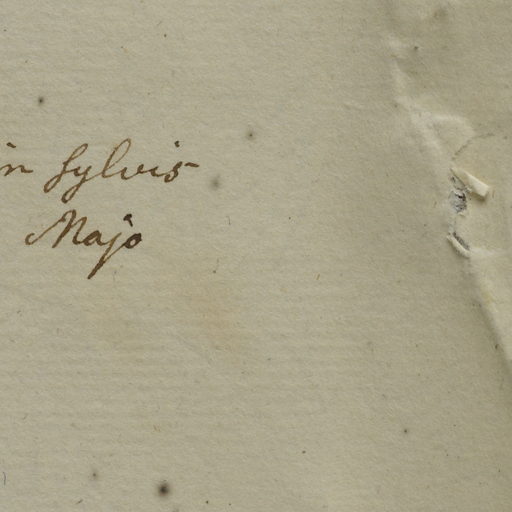 in sylvis
Majo